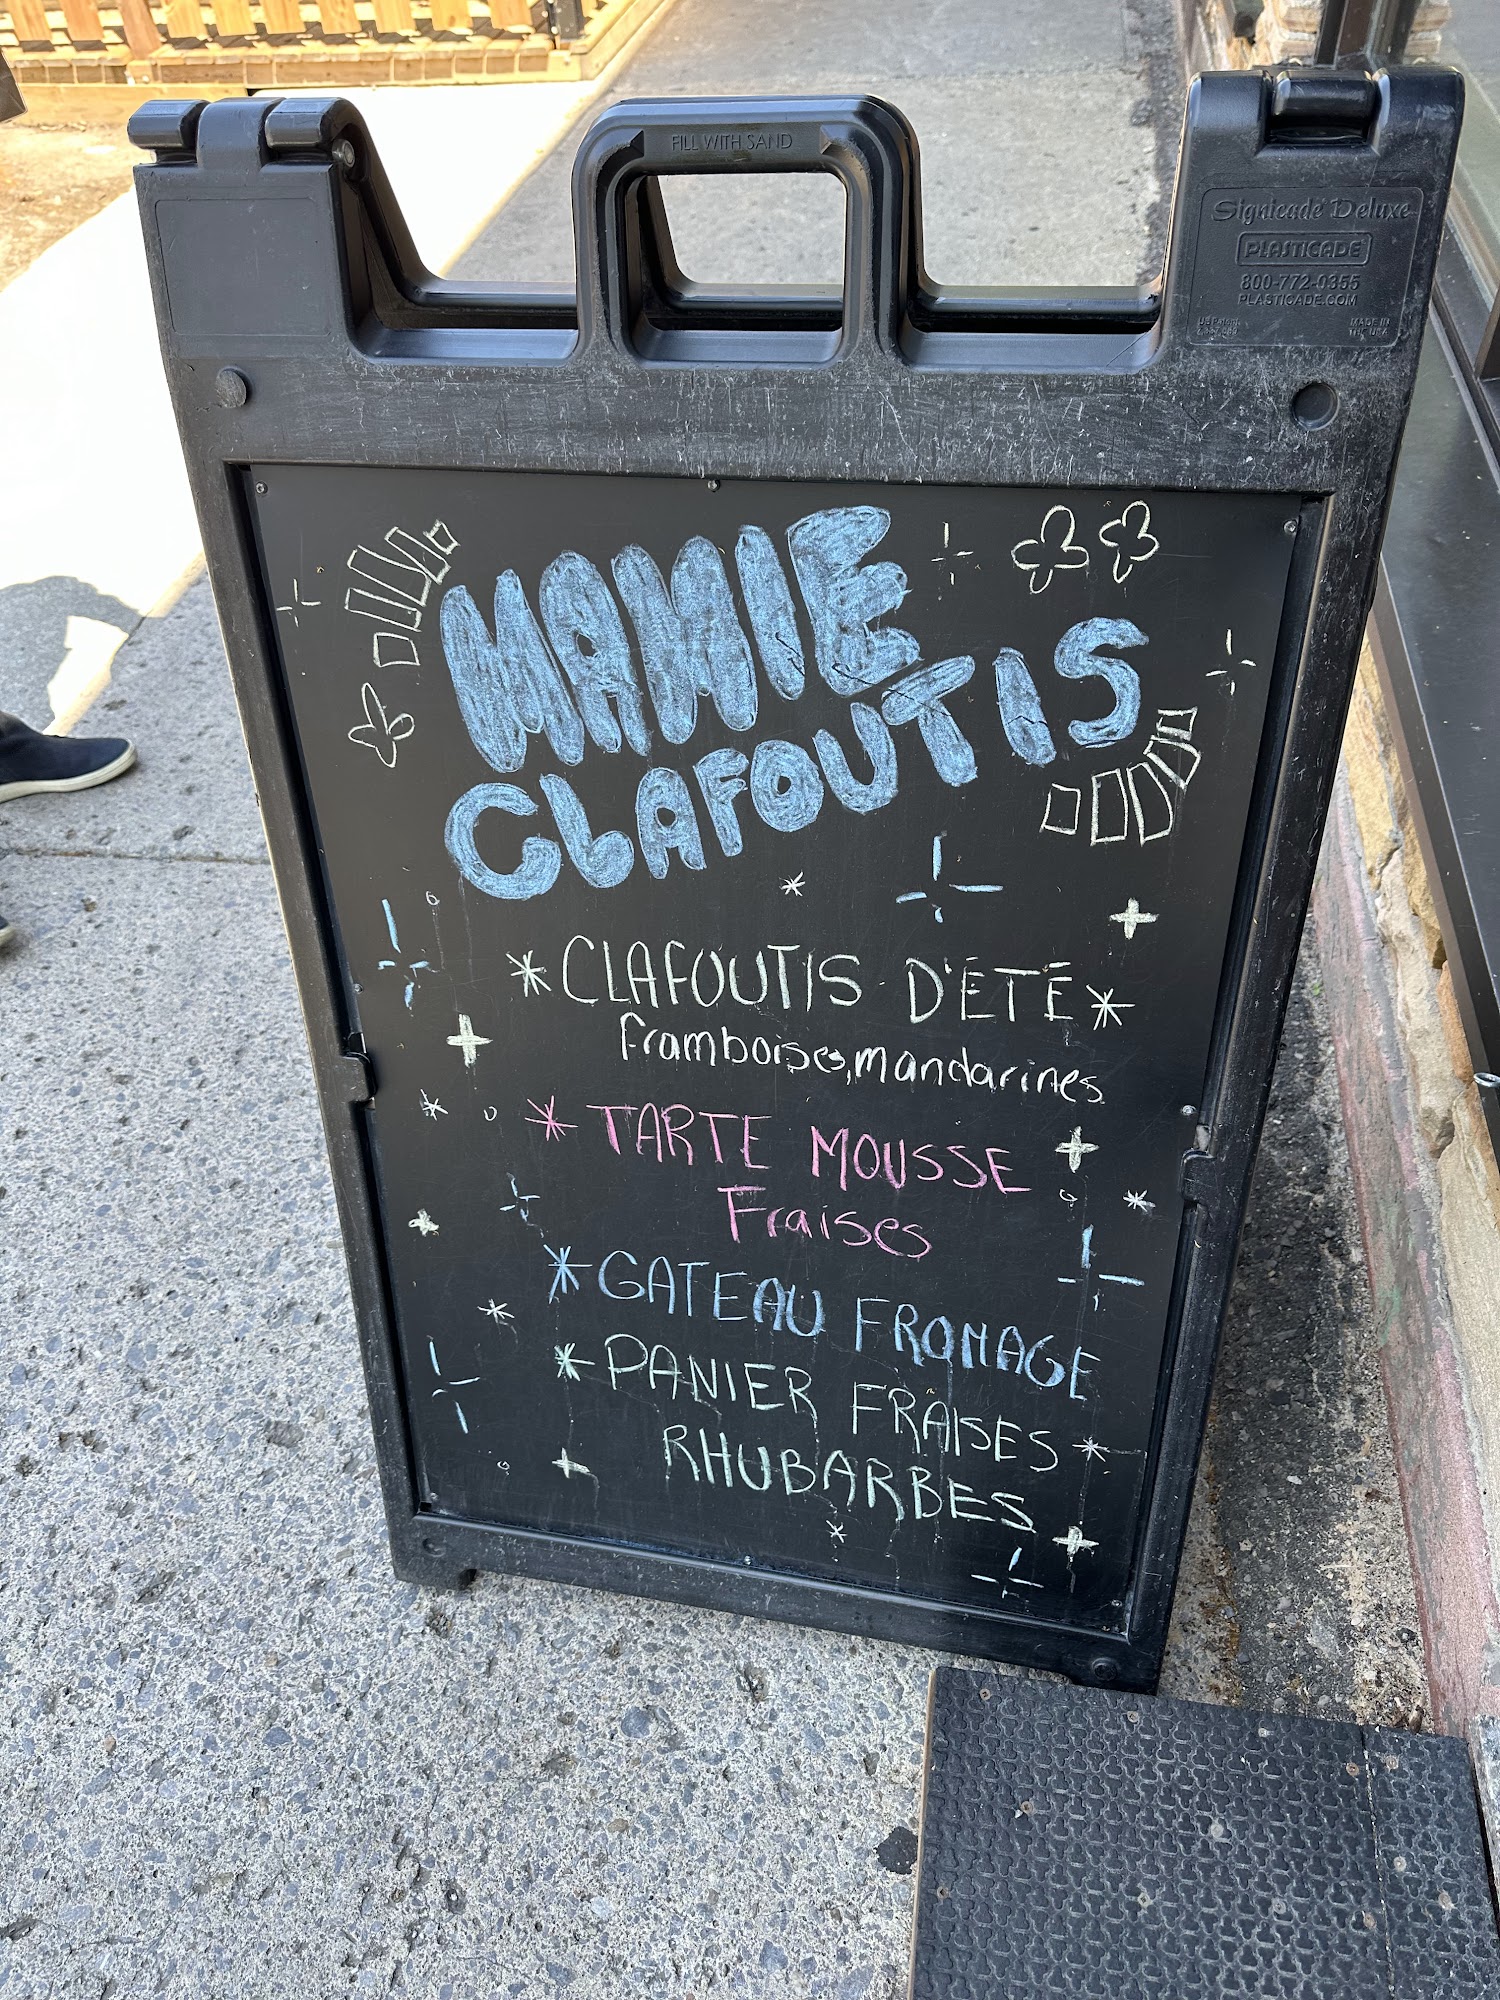 FILL WITH SAND
Signicade Deluxe
PLASTICADE
800-772-0355
PLASTICADE.COM
MADE IN
THE USA
MAMIE
CLAFOUTIS
*CLAFOUTIS D'ÉTÉ*
framboises,mandarines
*TARTE MOUSSE
Fraises
*GATEAU FROMAGE
*PANIER FRAISES
RHUBARBES